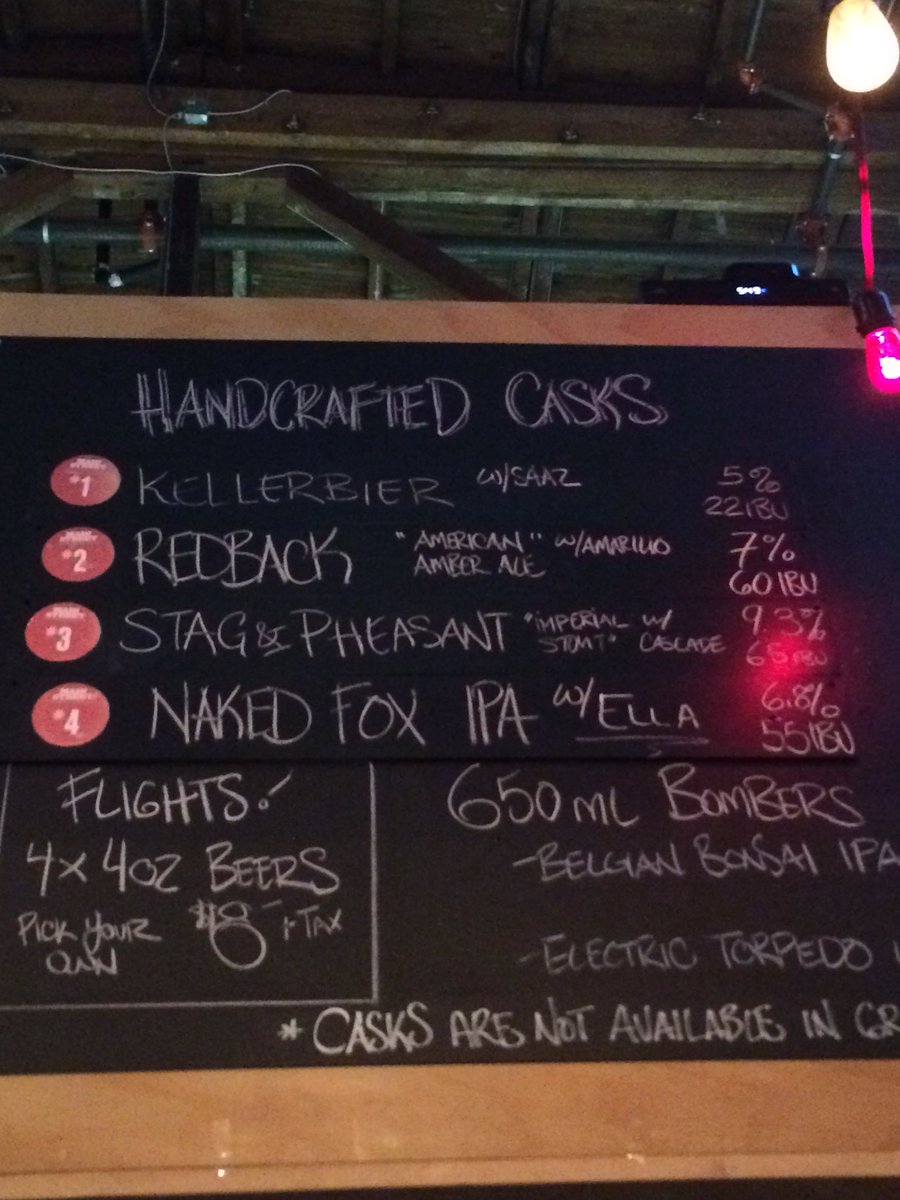 HANDCRAFTED CASKS
#1 KELLERBIER w/SAAZ 5%
22 IBU
#2 REDBACK "AMERICAN" w/AMARILLO 7%
AMBER ALE 60 IBU
#3 STAG & PHEASANT "IMPERIAL w/ 9.3%
STOUT" CASCADE 65 IBU
#4 NAKED FOX IPA w/ELLA 6.8%
55 IBU
FLIGHTS!
4 x 4oz BEERS
PICK YOUR OWN
$8- + TAX
650 ML BOMBERS
-BELGIAN BONSAI IPA
-ELECTRIC TORPEDO
* CASKS ARE NOT AVAILABLE IN GR